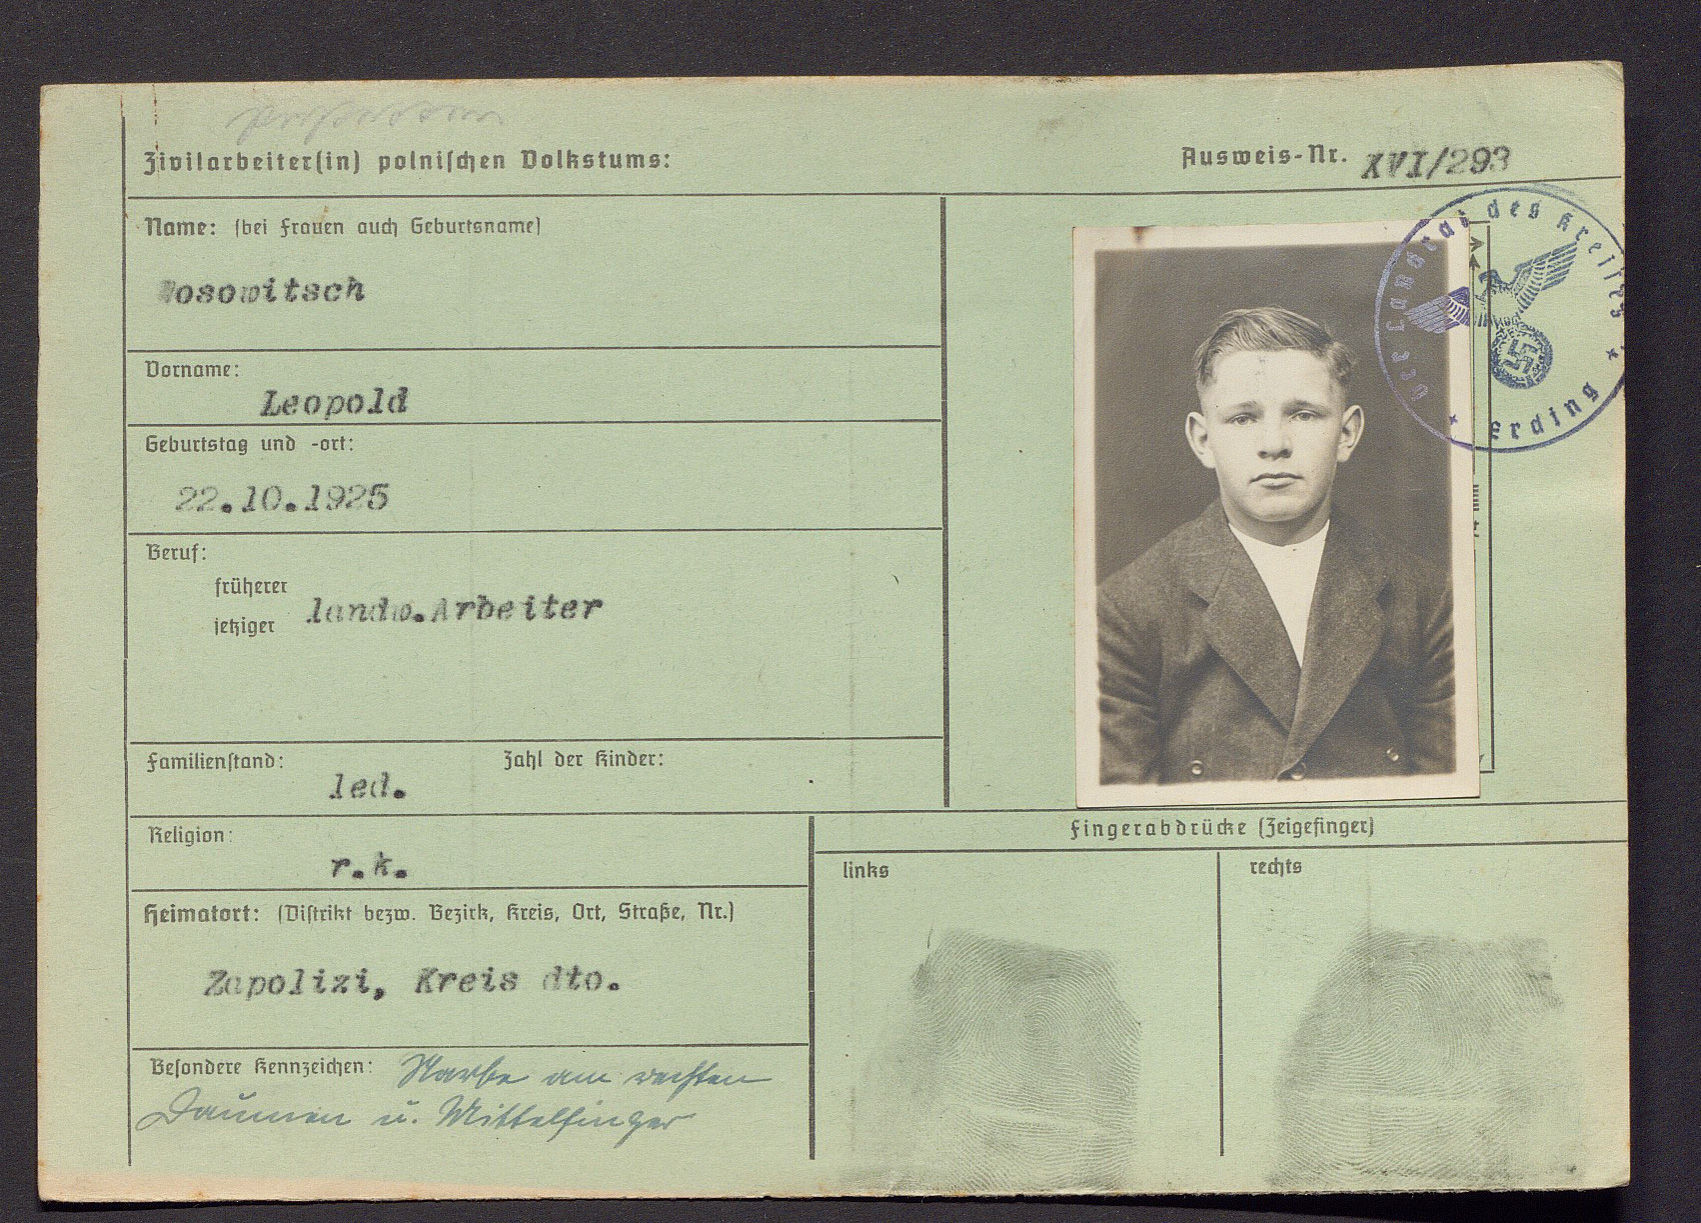 Zivilarbeiter(in) polnischen Volkstums:
Ausweis-Nr. XVI/293
Name: (bei Frauen auch Geburtsname)
Wosowitsch
Vorname:
Leopold
Geburtstag und -ort:
22.10.1925
Beruf:
früherer
jetziger landw.Arbeiter
Familienstand: Zahl der Kinder:
led.
Religion:
r.k.
Heimatort: (Distrikt bezw. Bezirk, Kreis, Ort, Straße, Nr.)
Zapolizi, Kreis dto.
Besondere Kennzeichen: Narbe am rechten
Daumen u. Mittelfinger
Der Landrat des Kreises
* Erding *
Fingerabdrücke (Zeigefinger)
links
rechts